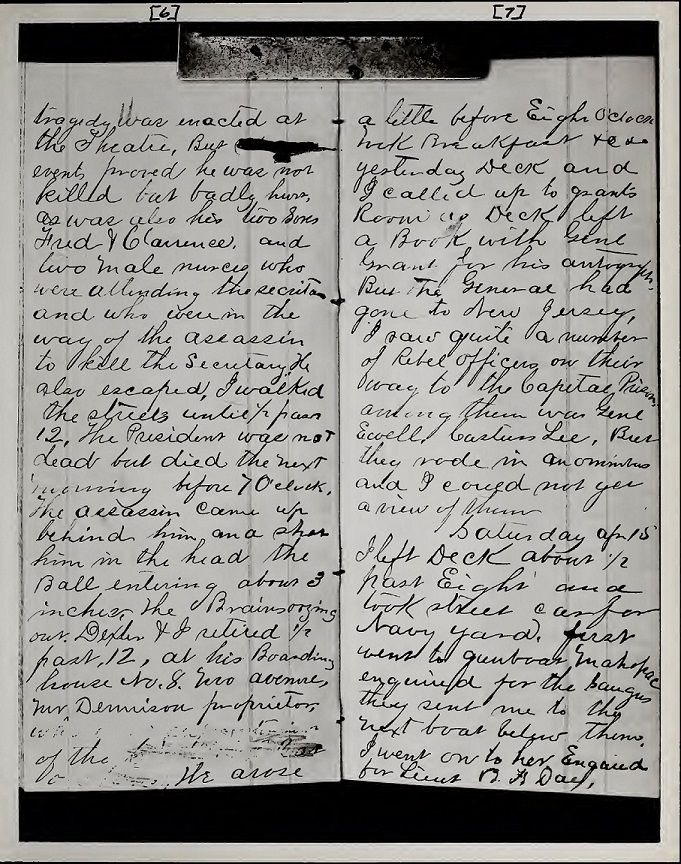 [6]
tragedy was enacted at
the Theatre, But
events proved he was not
killed but badly hurt,
as was also his two Sons
Fred & Clarrence, and
two male nurces, who
were attending the secreta
and who were in the
way of the assassin
to kill the Secretary He
also escaped, I walked
the streets until ½ pass
12, The President was not
dead but died the next
morning before 7 O'clock,
The assassin came up
behind him and shot
him in the head the
Ball entering about 3
inches, the Brains oozing
out, Dexter & I retired ½
past, 12, at his Boarding
house No. 8. Two avenue,
Mr Dennison proprietor,
of the
We arose
[7]
a little before Eight O'clock
took Breakfast &c &c
yesterday Deck and
I called up to grants
Room as Deck left
a Book with Genl
Grant for his autograph.
But the General had
gone to New Jersey,
I saw quite a number
of Rebel officers on their
way to the Capital Prison,
among them was Genl
Ewell, Custuss Lee, But
they rode in an ominibus
and I could not get
a view of them
Saturday apr 15
I left Deck about ½
past Eight and
took street car for
Navy Yard, first
went to gunboat Mahopac
enquired for the Saugus
they sent me to the
next boat below them,
I went on to her Enquired
for Lieut B. F. Day,